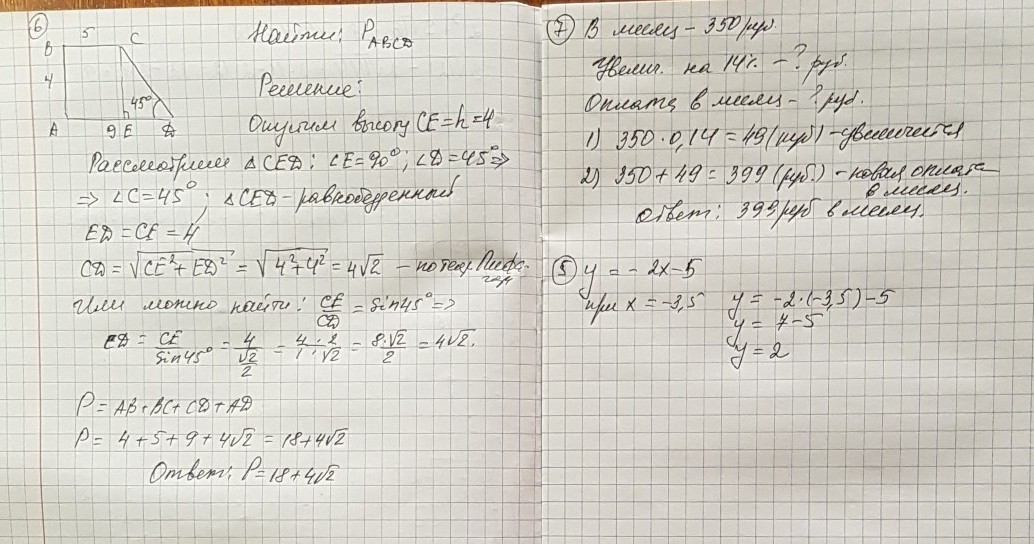 6
B 5 C
4
45°
A 9 E D
Найти: P ABCD
Решение:
Опустим высоту CE = h = 4
Рассмотрим △CED: ∠E = 90°; ∠D = 45° ⇒
⇒ ∠C = 45°; △CED - равнобедренный
ED = CE = 4
CD = √(CE² + ED²) = √(4² + 4²) = 4√2 - по теор. Пифагора
Или можно найти: CE/CD = sin45° ⇒
CD = CE/sin45° = 4/(√2/2) = 4/1 · 2/√2 = 8·√2/2 = 4√2.
P = AB + BC + CD + AD
P = 4 + 5 + 9 + 4√2 = 18 + 4√2
Ответ: P = 18 + 4√2
7 В месяц - 350 руб.
Увелич. на 14% - ? руб.
Оплата в месяц - ? руб.
1) 350 · 0,14 = 49 (руб) - увеличится
2) 350 + 49 = 399 (руб.) - новая оплата
в месяц.
Ответ: 399 руб в месяц.
5 y = - 2x - 5
при x = -3,5 y = -2·(-3,5) - 5
y = 7 - 5
y = 2